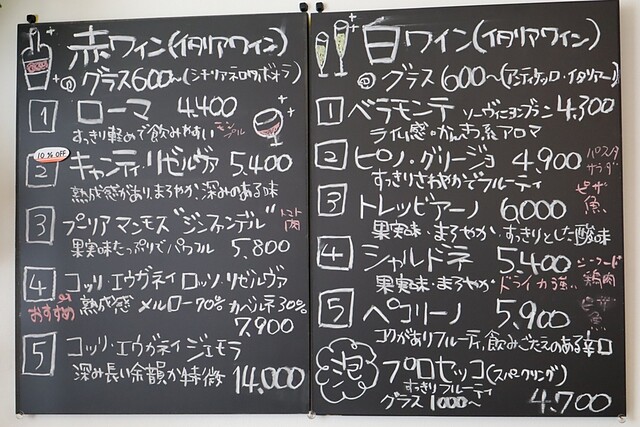 赤ワイン(イタリアワイン)
グラス600〜(シチリアネロダボオラ)
1 ローマ 4.400
すっきり軽めで飲みやすい
10%OFF
2 キャンティ・リゼルヴァ 5,400
熟成感があり、まろやか、深みのある味
3 プーリア マンモス"ジンファンデル" トマト 肉
果実味たっぷりでパワフル 5.800
4 コッリ・エウガネイ ロッソ・リゼルヴァ
おすすめ 熟成感 メルロー70% カベルネ30%
7,900
5 コッリ・エウガネイ ジェモラ
深み長い余韻が特徴 14.000
白ワイン(イタリアワイン)
グラス 600〜(アンティケッロ・イタリアー)
1 ベラモンテ ソーヴィニヨンブラン 4,300
ライム感・かんきつ系アロマ
2 ピノ・グリージョ 4,900 パスタ サラダ
すっきりさわやかでフルーティ
3 トレッビアーノ 6,000 ピザ 魚
果実味・まろやか・すっきりとした酸味
4 シャルドネ 5.400 シーフード 鶏肉
果実味・まろやか・ドライカ強
5 ペコリーノ 5,900 ピザ 魚
コクがありフルーティ、飲みごたえのある辛口
泡 プロセッコ(スパークリング)
すっきりフルーティ
グラス 1000〜 4.700